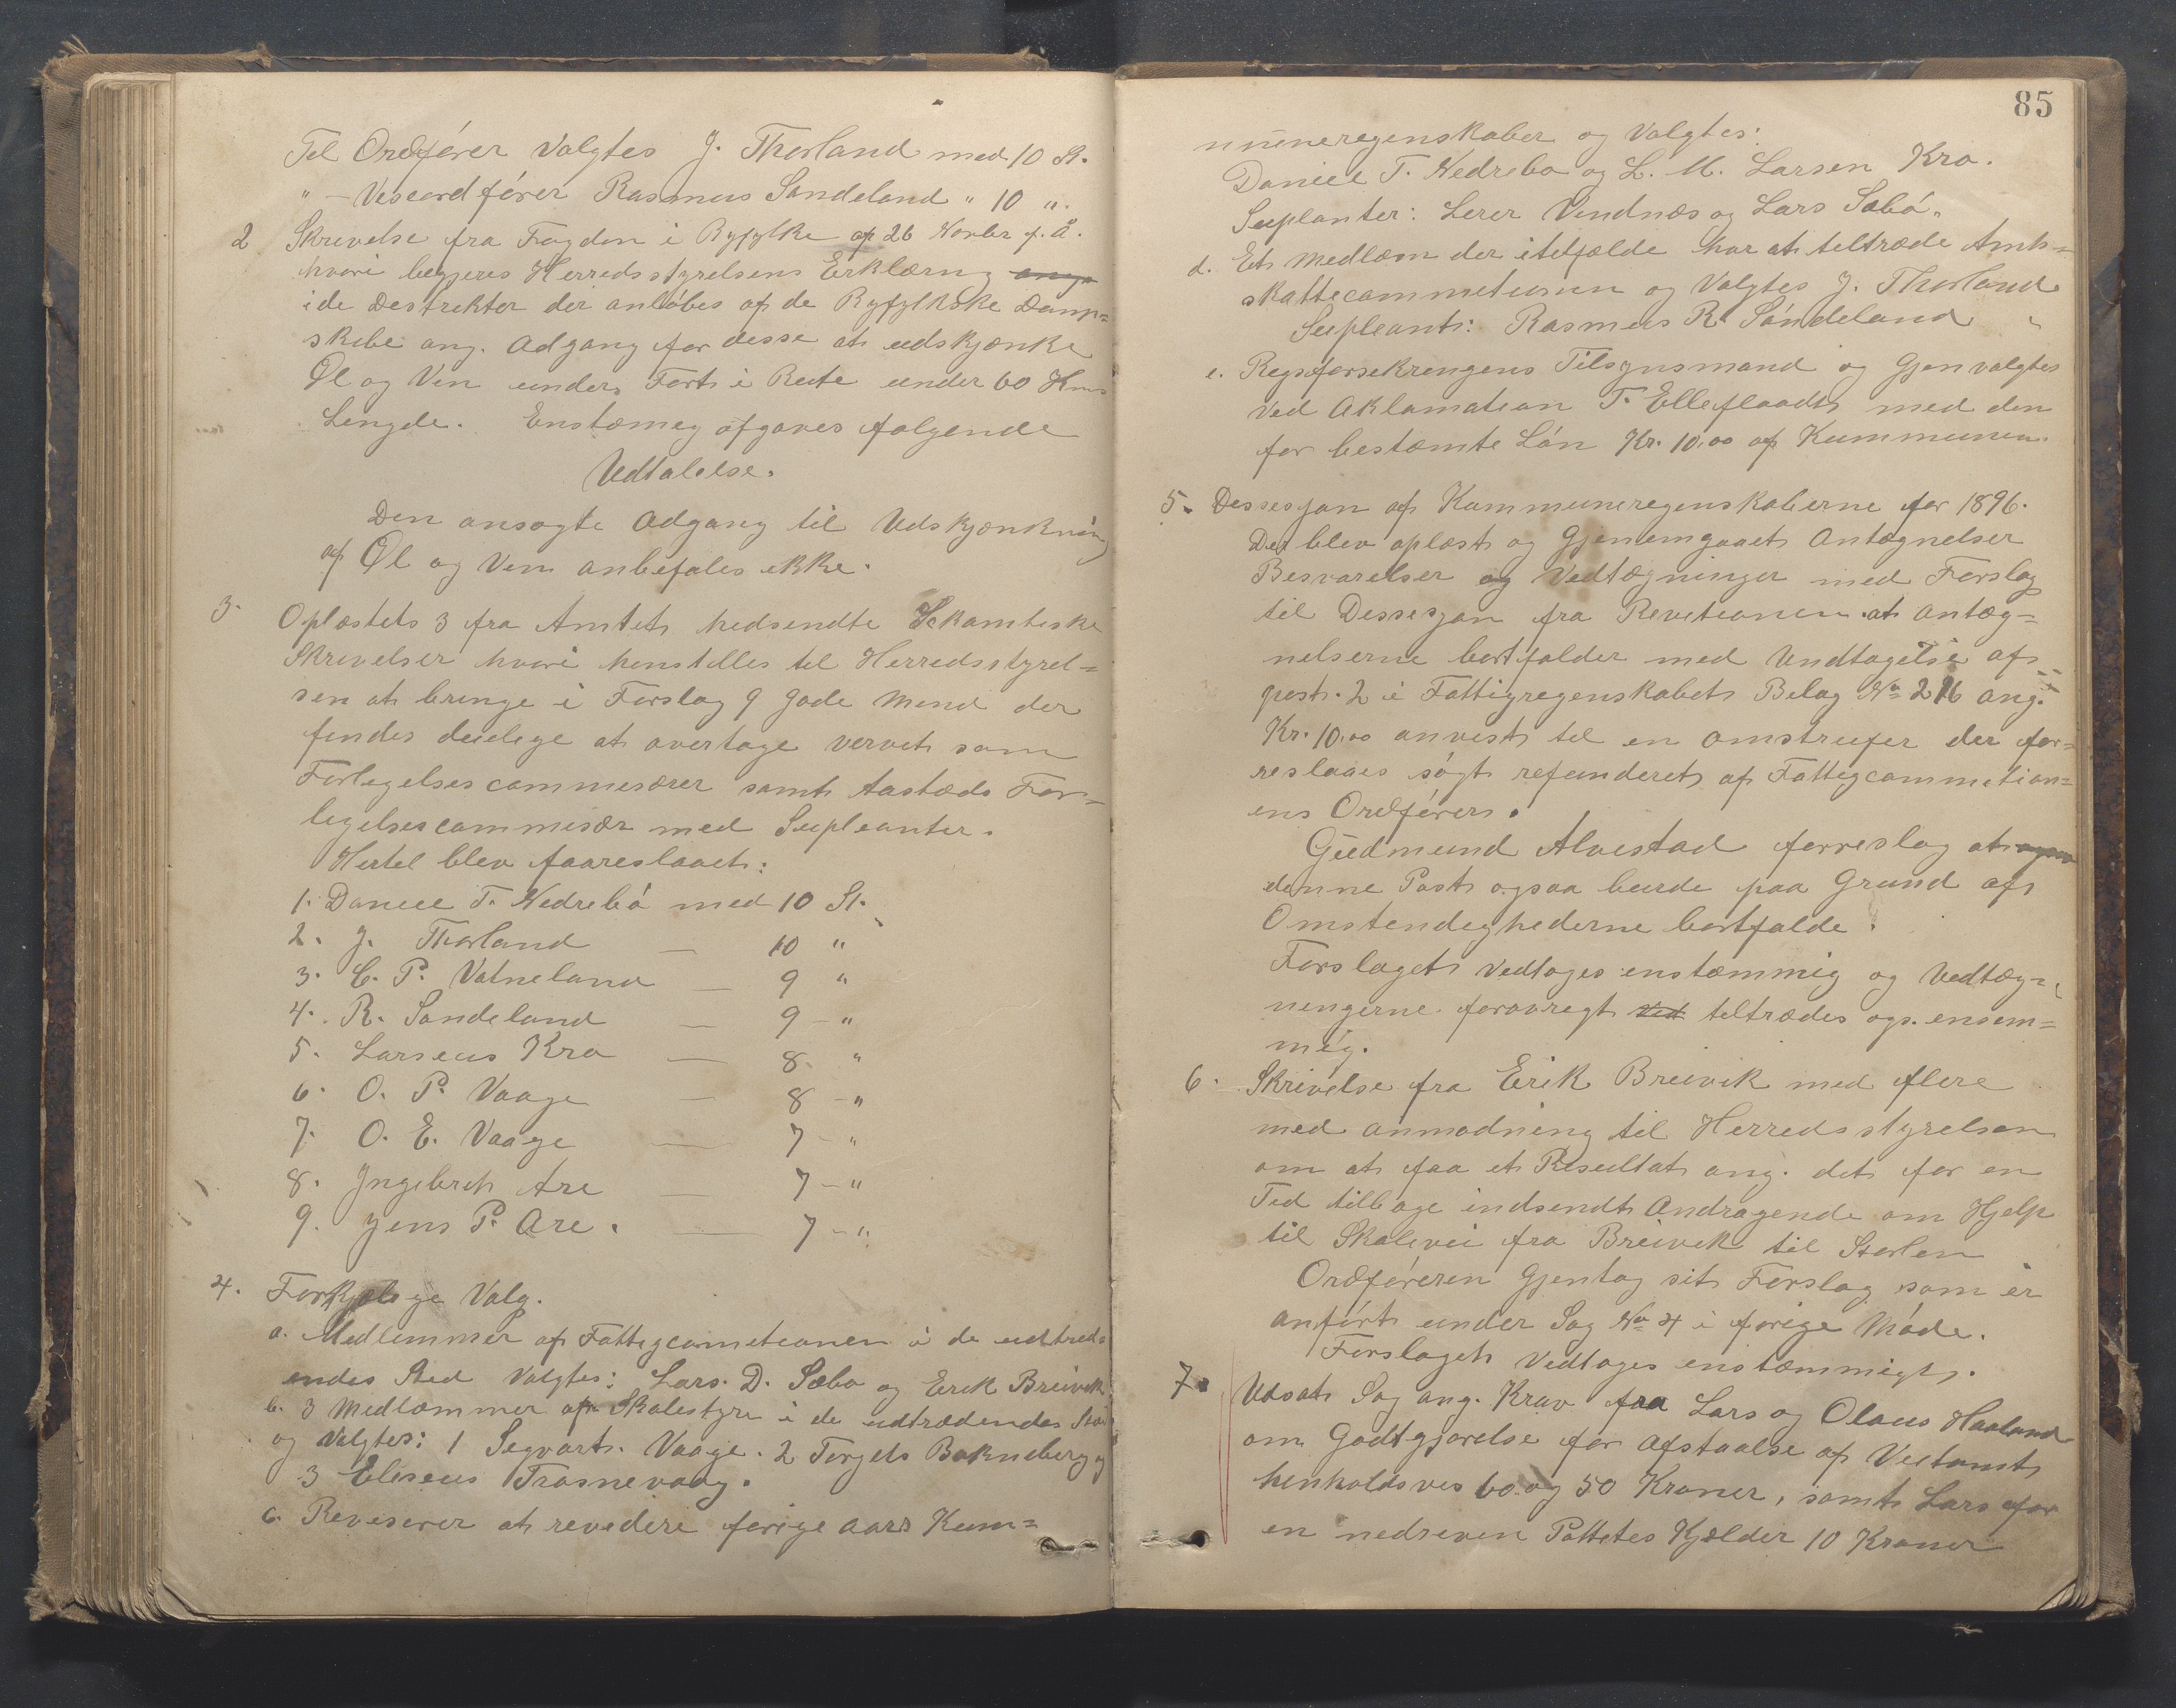 Til Ordförer Valgtes J. Thorland med 10 St.
" — Viseordförer Rasmus Sandeland " 10 ".
2 Skrivelse fra Fogden i Ryfylke af 26 Novbr f. Å.
hvori begjeres Herredsstyrelsens Erklæring
i de Destrekter der anlöbes af de Ryfylkske Damp=
skibe ang. Adgang for desse at udskjænke
Øl og Vin under Fart i Rute under 60 Kms
Lengde. Enstæmeg afgaves følgende
Udtalelse.
Den ansøgte Adgang til Udskjænkning
af Øl og Vin anbefales ikke.
3. Oplæstets 3 fra Amtet nedsendte
Skrivelser hvori henstilles til Herredsstyrel=
sen at bringe i Forslag 9 gode Mend der
findes duelige at overtage vervet som
Forligelsescommesærer samt Aastæds For=
ligelsescommisær med Supleanter.
Hertel blev faareslaaet:
1. Daniel T. Nedrebö med 10 St.
2. J. Thorland — 10 "
3. C. P. Vatneland — 9 "
4. R. Sandeland — 9 — "
5. Larseus Kro — 8. "
6. O. P. Vaage — 8 — "
7. O. E. Vaage — 7 — "
8. Ingebret Are — 7 — "
9. Jens P. Are. — 7 — "
4. Forskjelige Valg.
a. Medlemmer af Fattigcometionen i de udtred=
endes Sted Valgtes: Lars. D. Sæbo og Erik Breivik
b. 3 Medlæmmer af Skolestyre i de udtrædendes Sted
og Valgtes: 1 Segvart. Vaage. 2 Torgels Bokneberg og
3 Eliseus Trosnevaag.
c. Reviserer at revedere forige aars Kum=
85
muneregenskaber og Valgtes:
Daniel T. Nedrebo og L. M. Larsen Kro.
Suplanter: Lerer Vendnæs og Lars Sæbö.
d. Et Medlæm der itelfælde har at teltræde Amts=
skattecammetionen og Valgtes J. Thorland
Supleant: Rasmus R. Söndeland
e. Regsforsekrengens Tilsynsmand og Gjenvalgtes
ved Aklamation T. Elleflaadt med den
for bestæmte Lön Kr. 10.00 af Kummunen.
5. Dessesjon af Kommuneregenskaberne for 1896.
Der blev oplæst og Gjenemgaaet Antægnelser
Besvarelser og Vedtægninger med Forslag
til Dessesjon fra Revetionen at Antæg=
nelserne bortfalder med Undtagelse af
post. 2 i Fattigregenskabet Belag No 216 ang.
Kr. 10.00 anvist til en omstreifer der for=
reslaaes sögt refunderet af Fattigcommetion=
ens Ordförer.
Gudmund Alvestad forreslog at
denne Post ogsaa burde paa Grund af
Omstendeghederne bortfalde.
Forslaget Vedtoges enstæmmig og Vedtæg=
nengerne foravregt teltrædes ogs. ensem=
mig.
6. Skrivelse fra Erik Breivik med flere
med anmodning til Herredsstyrelsen
om at faa et Resultat ang. det for en
Ted tilbage indsendt Andragende om Hjelp
til Skolevei fra Breivik til Storlen
Ordföreren Gjentog sit Forslag som er
anfört under Sag No 4 i forige Möde.
Forslaget Vedtoges enstæmmigt.
7. Udsat Sag ang. Krav fra Lars og Olaus Haaland
om Godtgjørelse for Afstaalse af Veitomt
henholdsves 60 og 50 Kroner, samt Lars for
en nedreven Pottetes Kjælder 10 Kroner